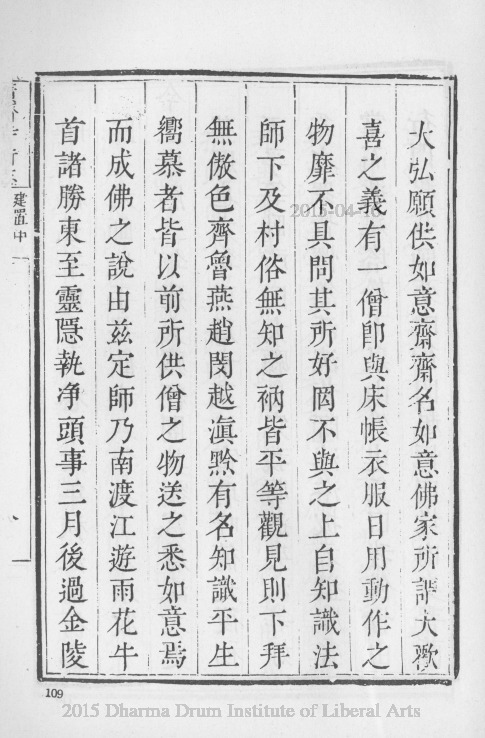 大弘願供如意齋齋名如意佛家所謂大歡
喜之義有一僧卽與床帳衣服日用動作之
物靡不具問其所好罔不與之上自知識法
師下及村俗無知之衲皆平等觀見則下拜
無傲色齊魯燕趙閩越滇黔有名知識平生
嚮慕者皆以前所供僧之物送之悉如意焉
而成佛之說由茲定師乃南渡江遊雨花牛
首諸勝東至靈隱執淨頭事三月後過金陵
建置中
109
2015-04-16
2015 Dharma Drum Institute of Liberal Arts